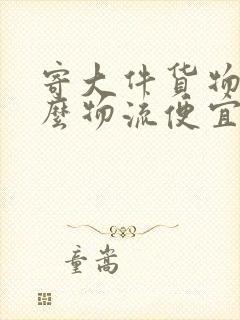 寄大件货物
麽物流便宜
童嵩